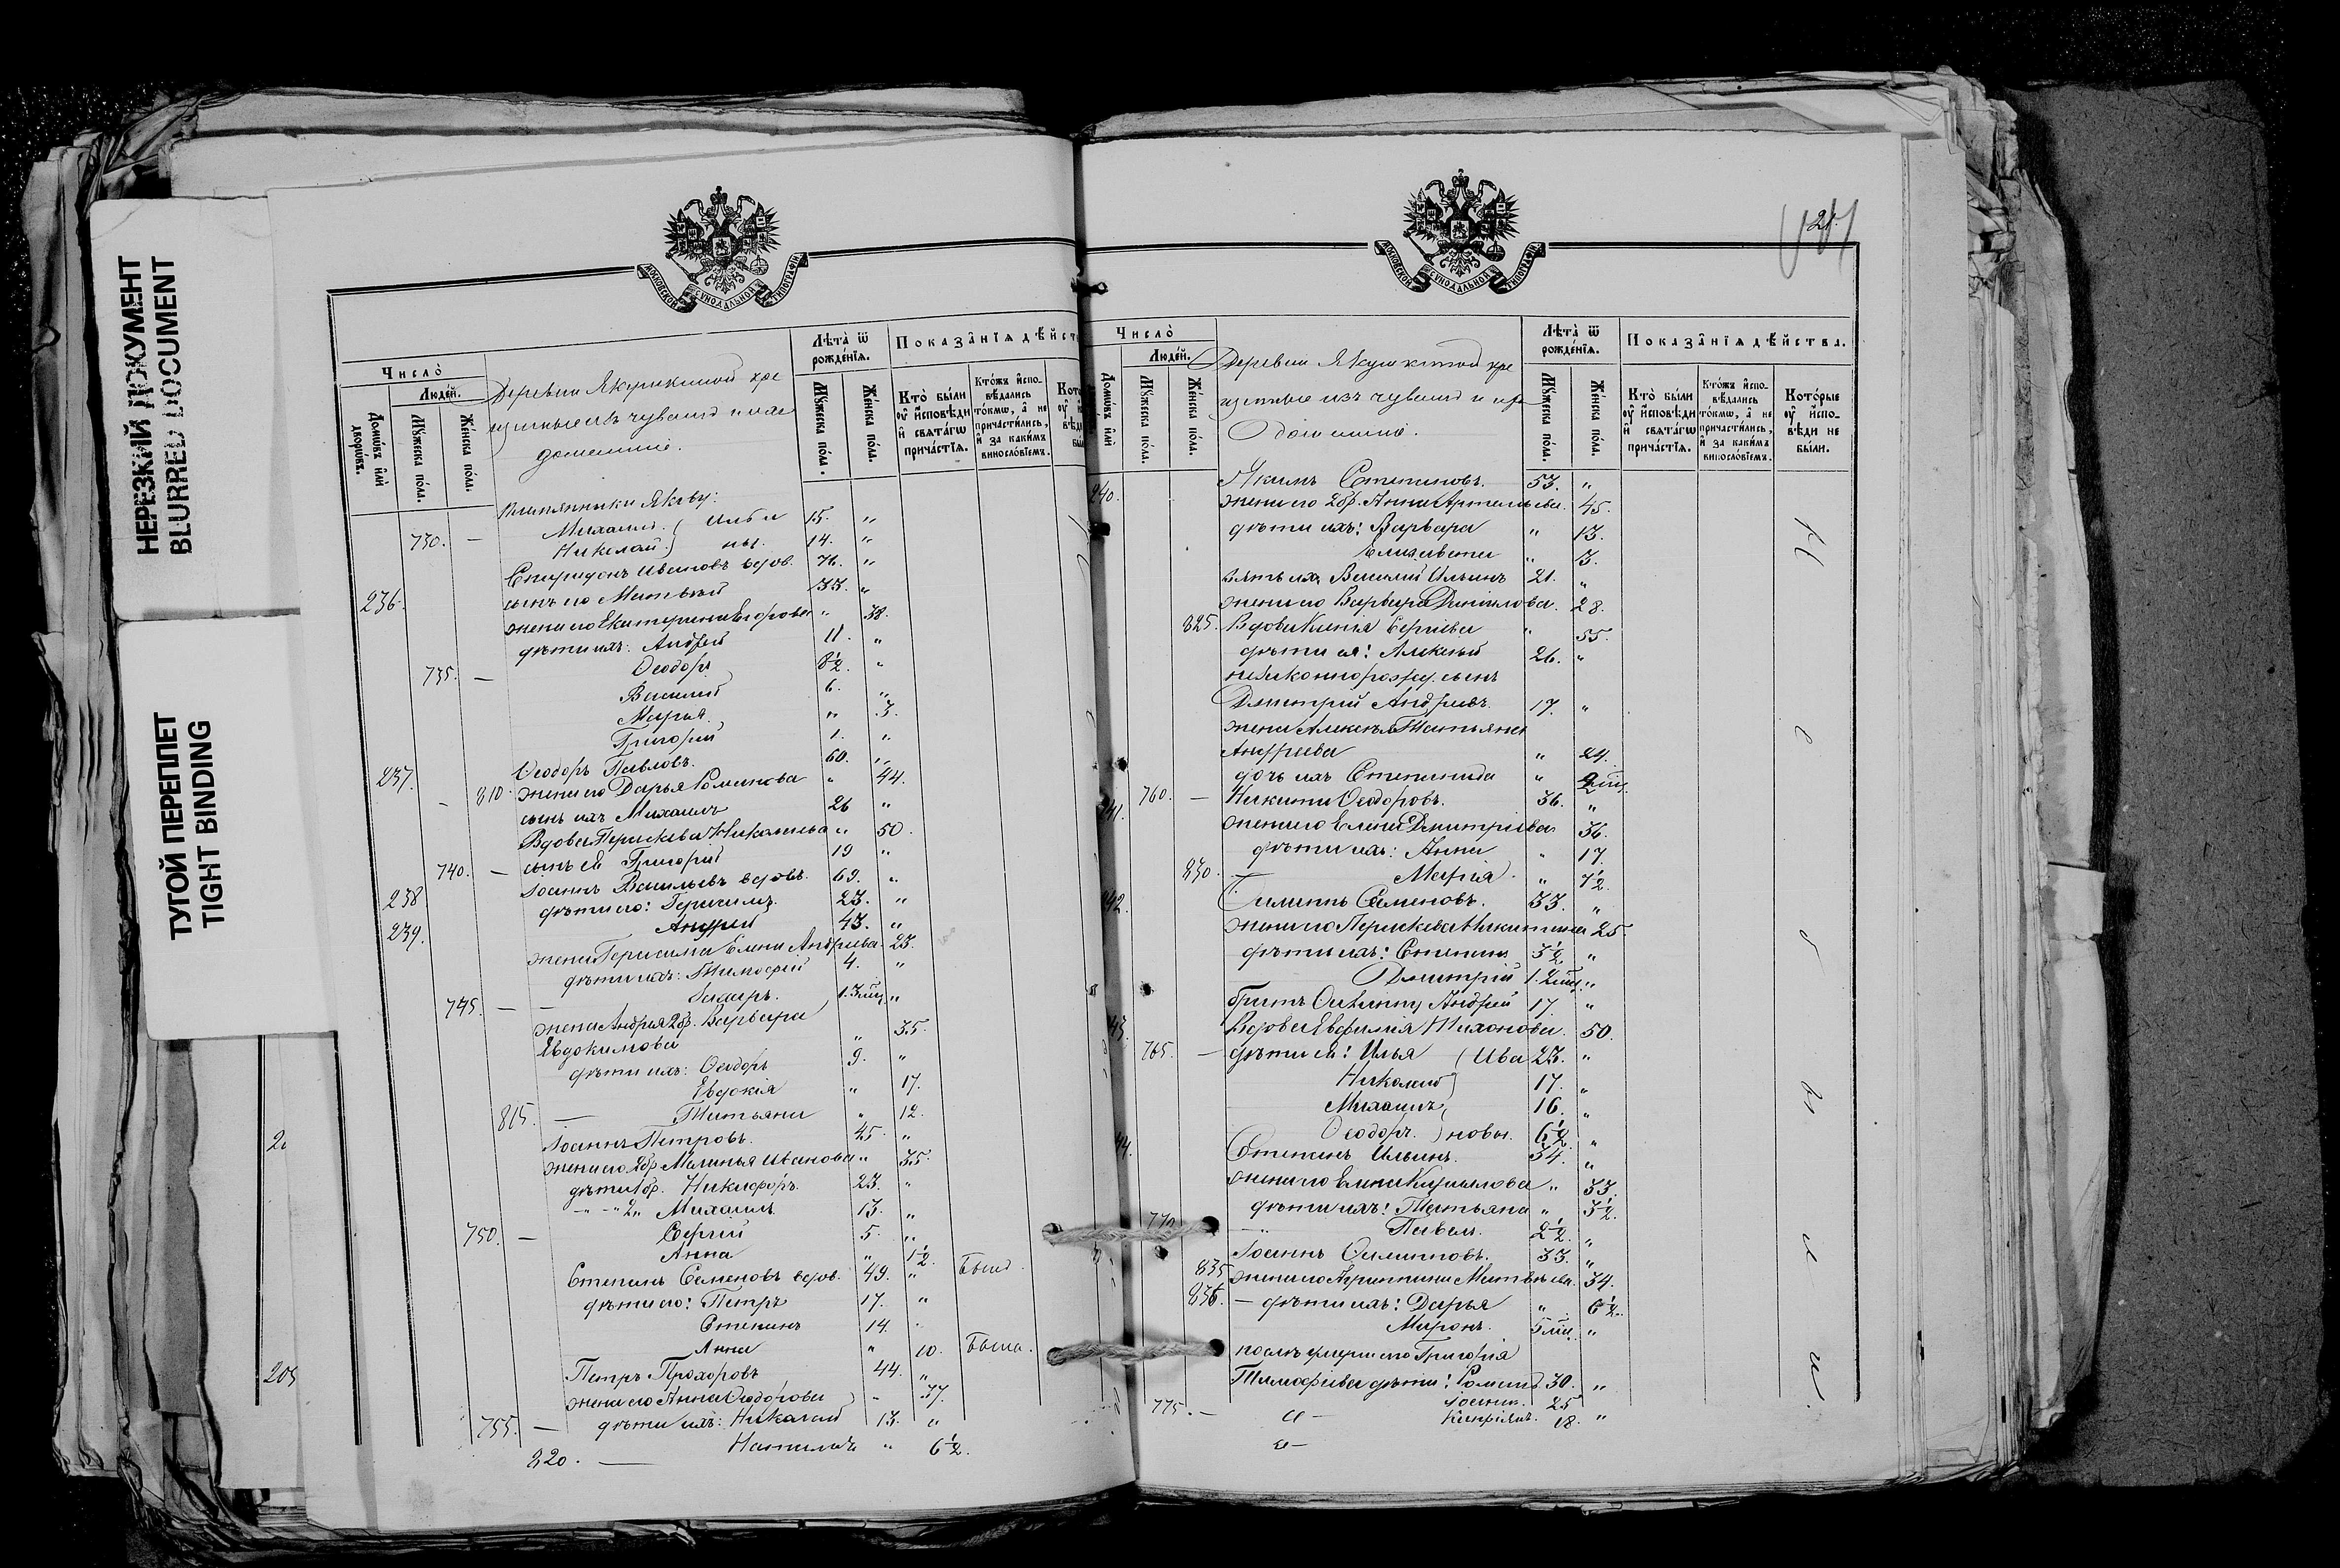 НЕРЕЗКИЙ ДОКУМЕНТ
BLURRED DOCUMENT
ТУГОЙ ПЕРЕПЛЕТ
TIGHT BINDING
МОСКОВСКОЙ СѴНОДАЛЬНОЙ ТИПОГРАФІИ
Число̀
Людéй.
Домѡ́въ и҆лѝ дворѡ́въ.
Мꙋ́жеска по́ла.
Же́нска по́ла.
Деревни Якушкиной кре
щеные изъ чувашъ и их
домашніе.
Лѣта̀ ѿ рожде́нїѧ.
Мꙋ́жеска по́ла.
Же́нска по́ла.
Показа̑нїѧ дѣ́йст
Кто̀ бы́ли оу҆ и҆сповѣ́ди и҆ свѧта́гѡ прича́стїѧ.
Кто́жъ и҆спо- вѣ́дались то́кмѡ, а҆ не причасти́лись, и҆ за каки́мъ винослѡ́вїемъ.
племянники Якову:
Михаилъ ( Ильи 15. "
730. — Николай ) ны. 14. "
236. Спиридонъ Ивановъ вдов. 71. "
сынъ его Матвей 33. "
жена его Екатерина Егорова " 38.
дѣти ихъ: Андрей 11. "
735. — Ѳеодоръ 8½. "
Василій 6. "
Марья " 3.
Григорій 1. "
237. Ѳеодоръ Павловъ. 60. "
810. жена его Дарья Романова " 44.
сынъ ихъ Михаилъ 26 "
Вдова Параскева Николаева " 50.
740. — сынъ ея Григорій 19 "
238 Іоаннъ Васильевъ вдовъ. 69. "
дѣти его: Герасимъ 23. "
239. Андрей 43. "
жена Герасима Елена Андреева. 23.
дѣти ихъ: Тимофей 4. "
745. — 1. 3 мѣц "
жена Андрея 2 бр. Варвара
Евдокимова " 35.
дѣти ихъ: Ѳеодоръ 9. "
Евдокія " 17.
815. — Татьяна " 12.
Іоаннъ Петровъ. 45. "
жена его 2 бр. Маланья Иванова " 35.
дѣти 1 бр. Никифоръ. 23. "
" " 2 " Михаилъ 13. "
750. — Сергій 5. "
Анна " 1½.
Степанъ Семеновъ вдов. 49. " Былъ.
дѣти его: Петръ 17. "
Степанъ 14. "
Анна " 10. Была.
Петръ Прохоровъ 44. "
жена его Анна Ѳеодорова " 37.
755. — дѣти ихъ: Николай 13. "
820. — Наталья " 6½.
205
МОСКОВСКОЙ СѴНОДАЛЬНОЙ ТИПОГРАФІИ
21.
Число̀
Людéй.
Домѡ́въ и҆лѝ
Мꙋ́жеска по́ла.
Же́нска по́ла.
Деревни Якушкиной кре
щеные изъ чувашъ и их
домашніе.
Лѣта̀ ѿ рожде́нїѧ.
Мꙋ́жеска по́ла.
Же́нска по́ла.
Показа̑нїѧ дѣ́йства.
Кто̀ бы́ли оу҆ и҆сповѣ́ди и҆ свѧта́гѡ прича́стїѧ.
Кто́жъ и҆спо- вѣ́дались то́кмѡ, а҆ не причасти́лись, и҆ за каки́мъ винослѡ́вїемъ.
Кото́рые оу҆ и҆спо- вѣ́ди не бы́ли.
240. Якимъ Степановъ. 53. "
жена его 2 бр. Анна Артемьева. 45.
дѣти ихъ: Варвара " 13.
Елизавета " 3.
зять ихъ Василій Ильинъ 21. "
жена его Варвара Данилова. 28.
825. Вдова Ксенія Сергіева " 55.
дѣти ея: Алексѣй 26. "
незаконнорожд. сынъ
Димитрій Андреевъ. 17. "
жена Алексѣя Татьяна
Андреева " 24.
дочь ихъ Степанида " 2 мѣц.
241. 760. — Никита Ѳеодоровъ. 36. "
жена его Елена Димитріева 36.
дѣти ихъ: Анна " 17.
830. — Марія " 7½.
242. Филиппъ Семеновъ. 33. "
жена его Параскева Никитина 25.
дѣти ихъ: Степанъ 3½ "
Димитрій 1. 2 мѣц "
братъ Филиппу Андрей 17. "
43. Вдова Евфимія Тихонова. 50.
765. — дѣти ея: Илья ( Ива 23. "
Николай 17. "
Михаилъ 16. "
Ѳеодоръ. ) новы. 6½. "
44. Степанъ Ильинъ. 34. "
жена его Елена Кирилова " 33.
дѣти ихъ: Татьяна " 3½.
770 Павелъ. 2½. "
Іоаннъ Филипповъ. 33. "
835 жена его Агриппина Матвѣева. 34.
836. — дѣти ихъ: Дарья " 6½.
Миронъ. 5 мѣц. "
послѣ умершаго Григорія
Тимофеева дѣти: Романъ 30. "
775. — Іоаннъ. 25
18. "